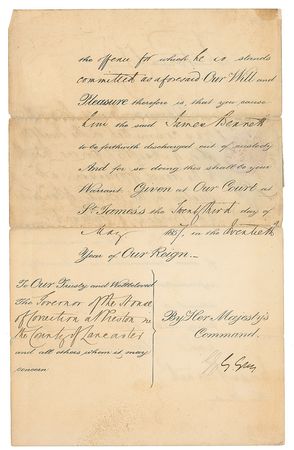 the offence for which he so stands
committed as aforesaid Our Will and
Pleasure therefore is, that you cause
him the said James Bennett
to be forthwith discharged out of custody
And for so doing this shall be your
Warrant. Given at Our Court at
St. James's the Twenty third day of
May 1857, in the Twentieth
Year of Our Reign.
To Our Trusty and Wellbeloved
The Governor of the House
of Correction at Preston in
the County of Lancaster
and all others whom it may
concern
By Her Majesty's
Command.
G Grey